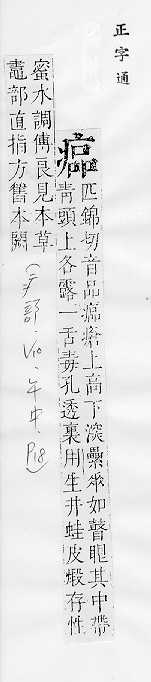 正字通
癌
匹錦切音品癌瘡上高下深纍𡸁如瞽眼其中帶
青頭上各露一舌毒孔透裏用生井蛙皮煅存性
蜜水調傅良見本草
鼃部直指方舊本闕
(疒部.V10.午中.P18)